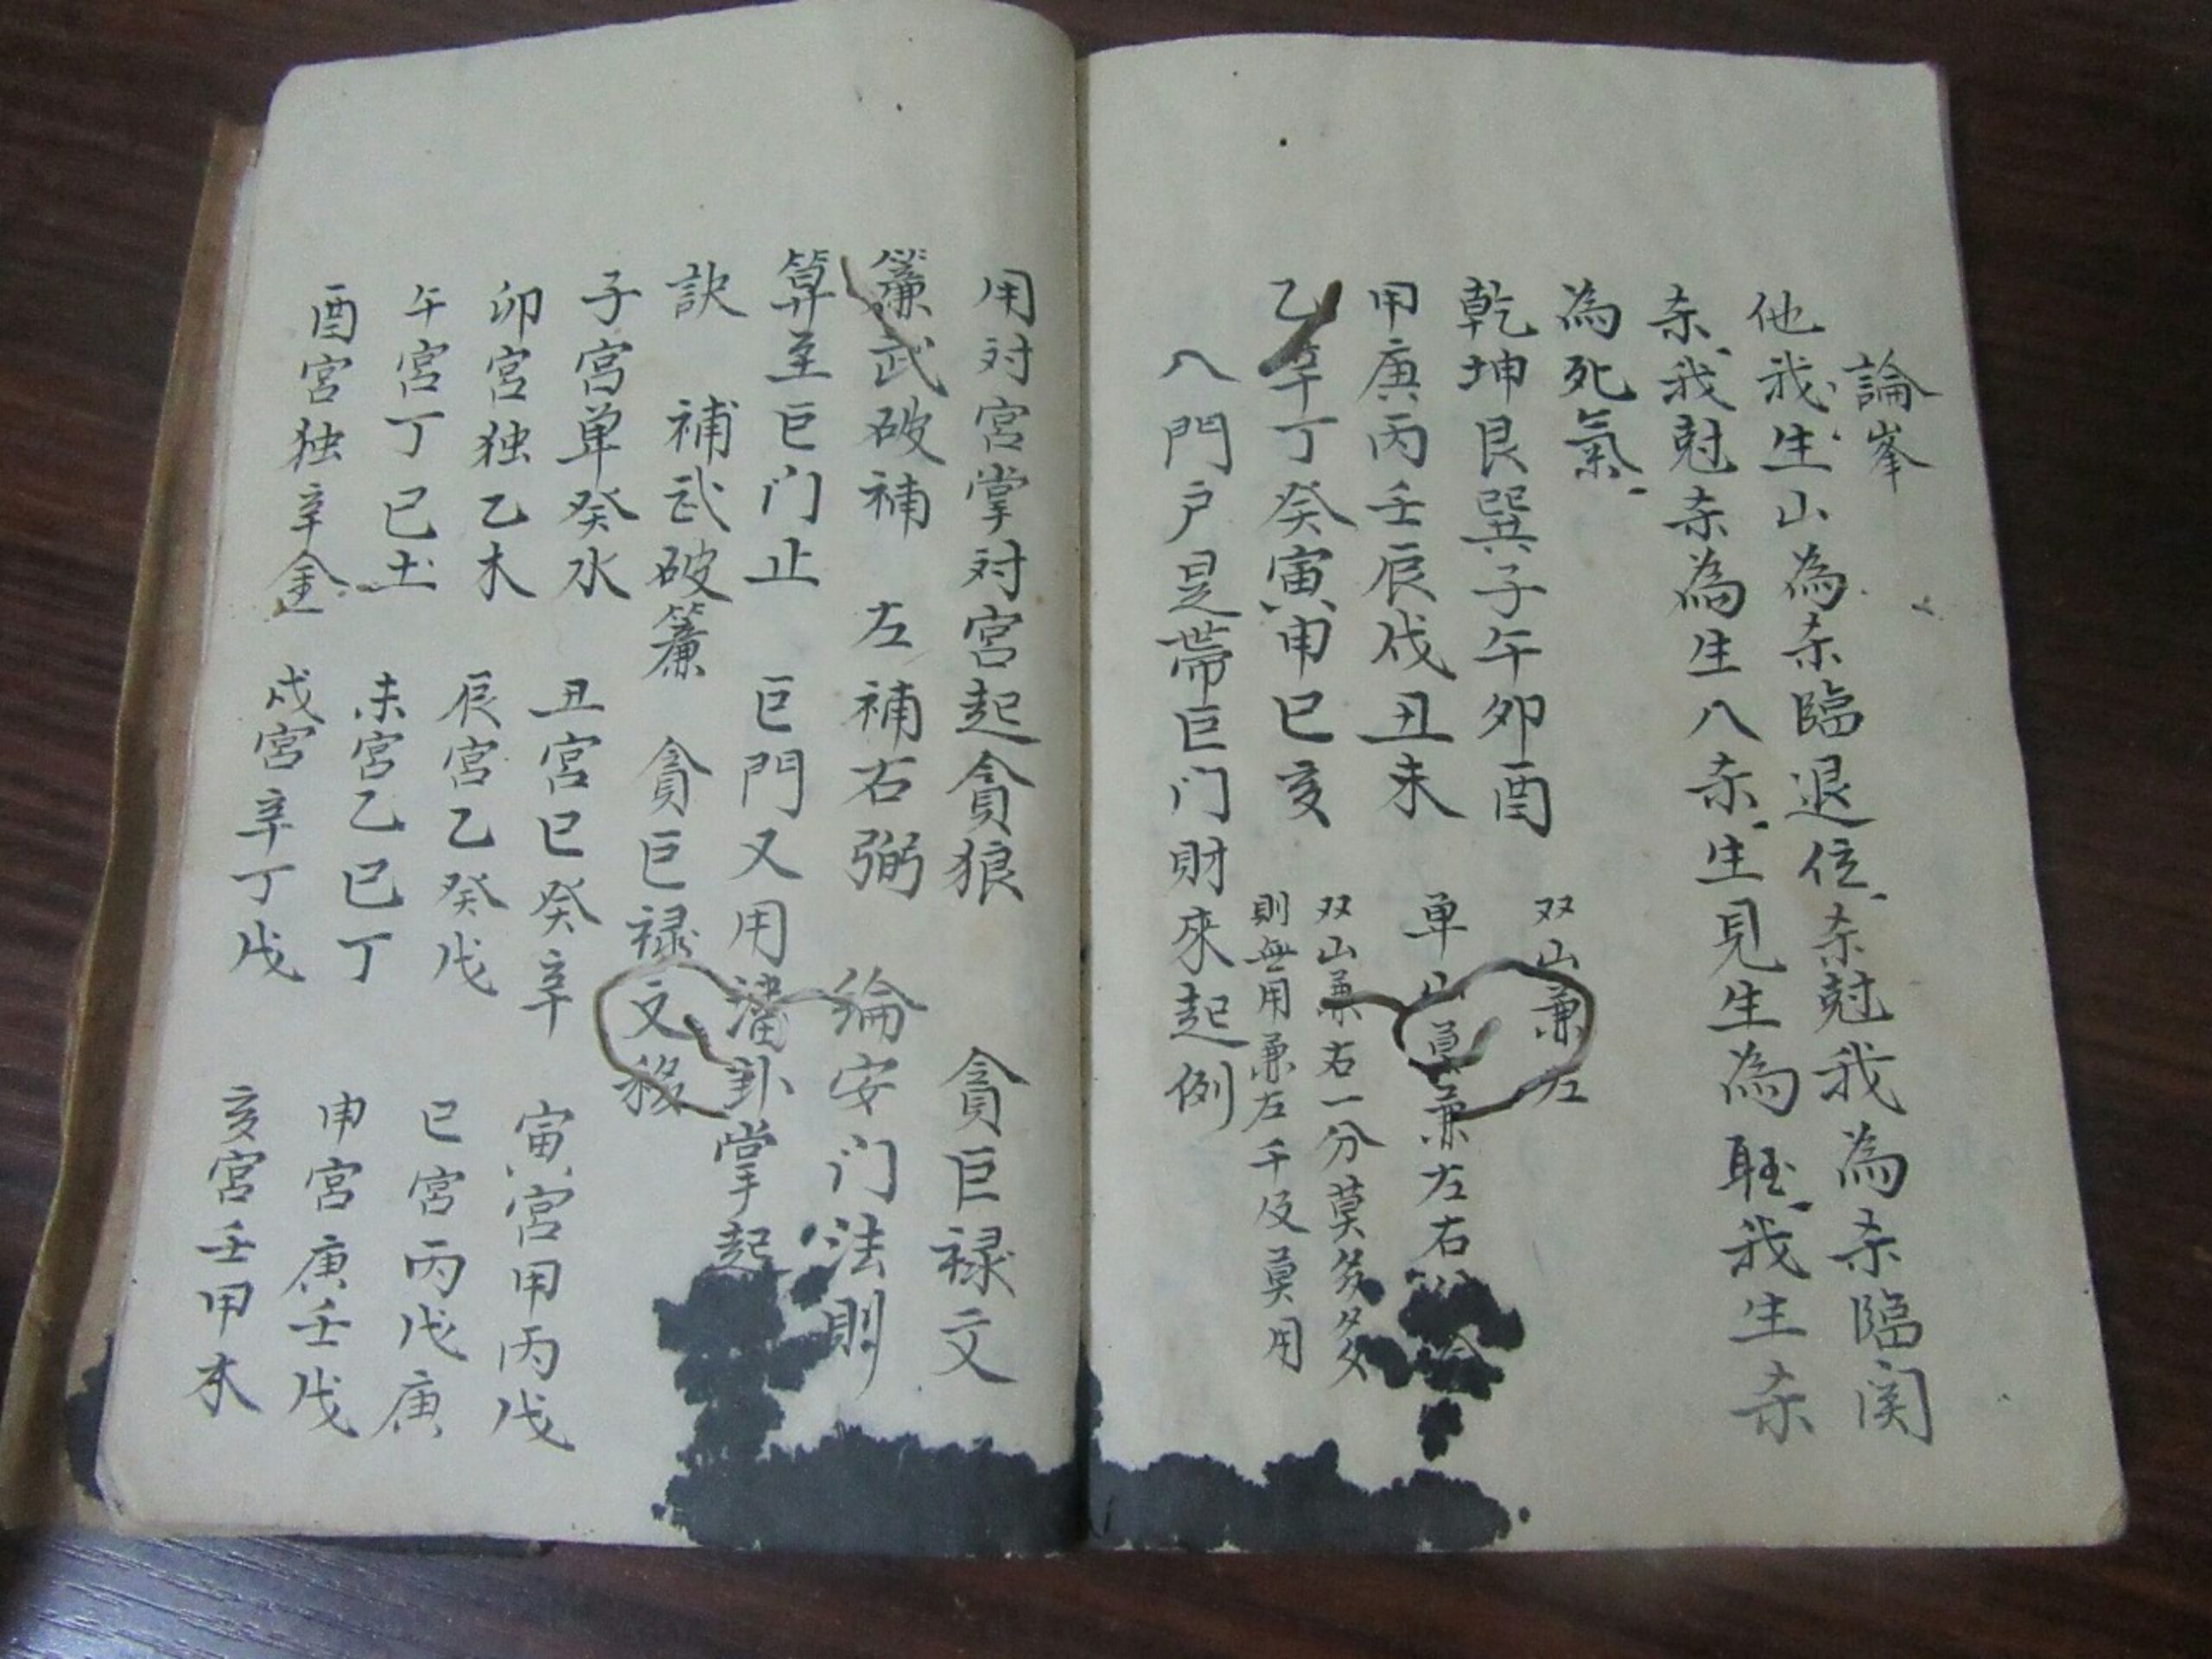 論峯
他我生山為杀臨退位杀尅我為杀臨関
杀我尅杀為生八杀生見生為聀我生杀
為死氣
乾坤艮巽子午卯酉 双山兼左
甲庚丙壬辰戌丑未 单山莫兼左右
乙辛丁癸寅申巳亥 双山兼右一分莫多
則無用兼左千及莫用
八門户是帶巨门財來起例
用対宮掌対宮起貪狼 貪巨禄文
簾武破補 左補右弼 論安门法則
算至巨门止 巨門又用潘卦掌起
訣 補武破簾 貪巨禄文移
子宮单癸水 丑宮巳癸辛 寅宮甲丙戊
卯宮独乙木 辰宮乙癸戊 巳宮丙戊庚
午宮丁巳土 未宮乙巳丁 申宮庚壬戊
酉宮独辛金 戌宮辛丁戊 亥宮壬甲木